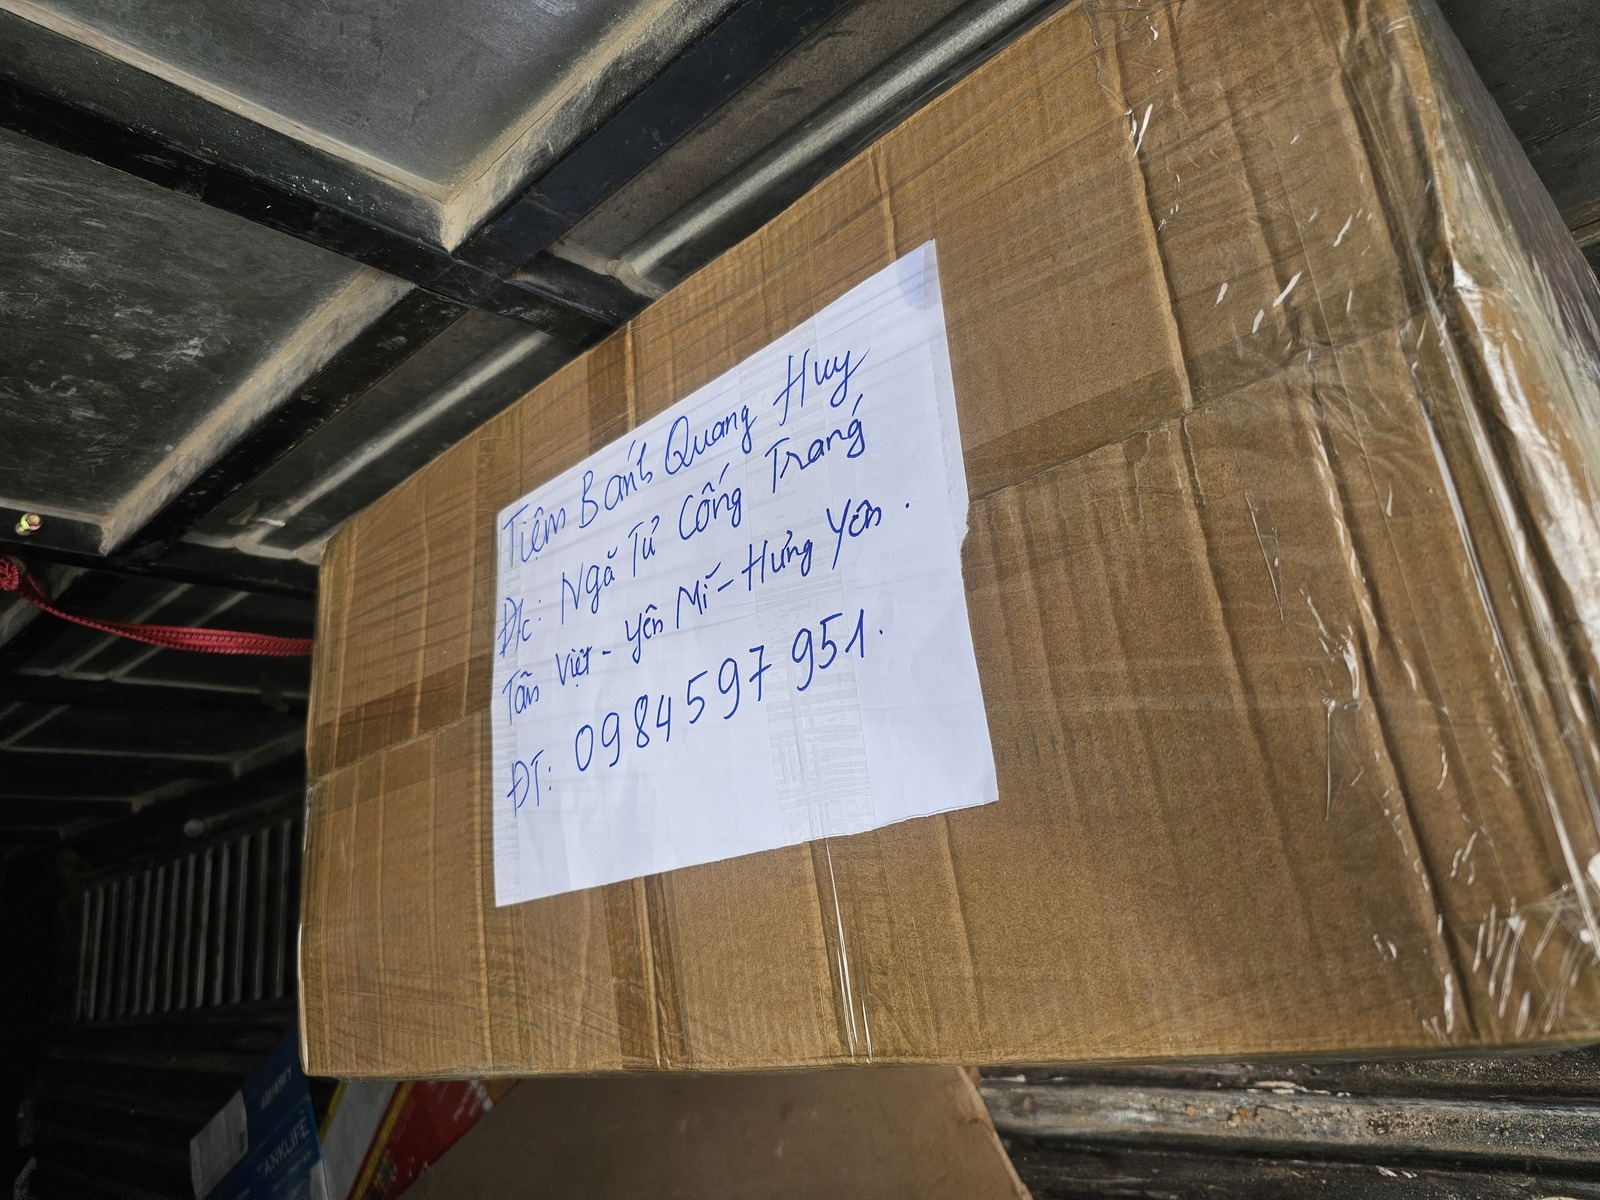 Tiệm Bánh Quang Huy
Đ/c: Ngã Tử Cống Tráng
Tân Việt - Yên Mĩ - Hưng Yên.
ĐT: 0984597951.
TANKLIFE